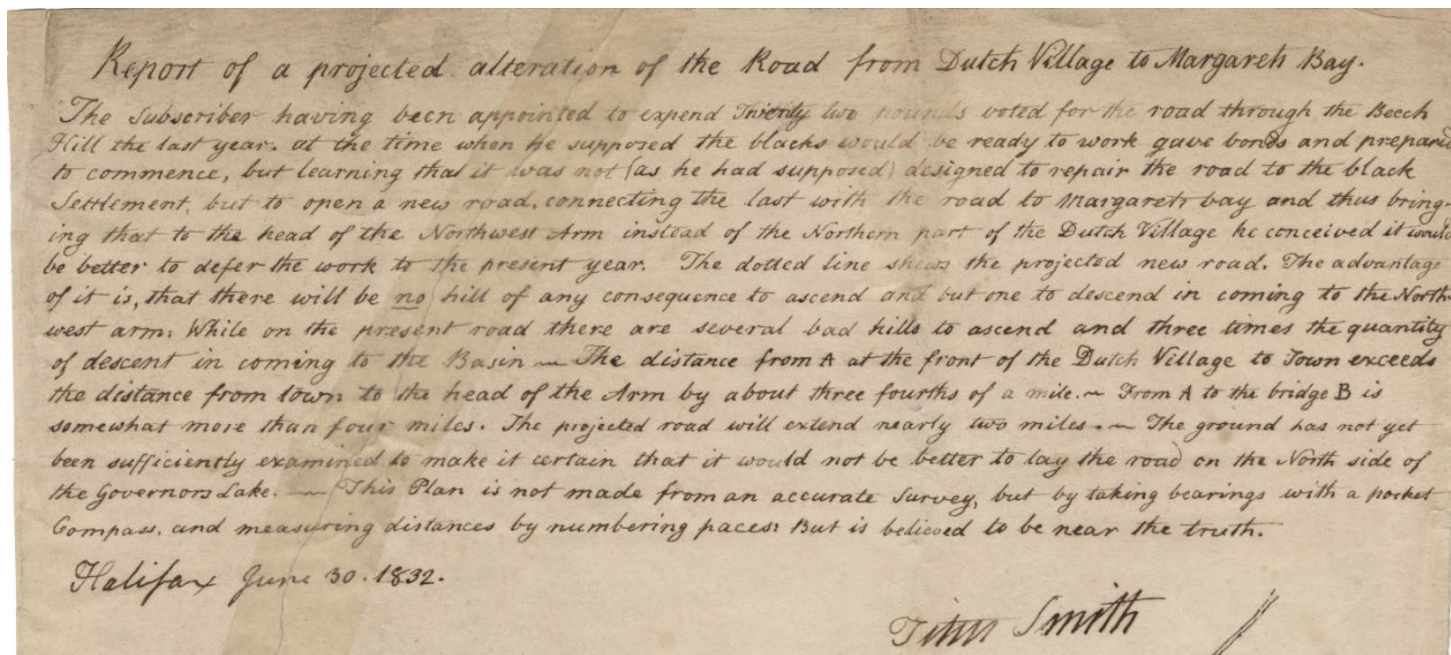 Report of a projected alteration of the Road from Dutch Village to Margarets Bay.
The Subscriber having been appointed to expend Twenty two pounds voted for the road through the Beech
Hill the last year. at the time when he supposed the blacks would be ready to work gave bonds and prepared
to commence, but learning that it was not (as he had supposed) designed to repair the road to the black
Settlement, but to open a new road, connecting the last with the road to Margarets bay and thus bring-
ing that to the head of the Northwest Arm instead of the Northern part of the Dutch Village he conceived it would
be better to defer the work to the present year. The dotted line shews the projected new road. The advantage
of it is, that there will be no hill of any consequence to ascend and but one to descend in coming to the North-
west arm: While on the present road there are several bad hills to ascend and three times the quantity
of descent in coming to the Basin — The distance from A at the front of the Dutch Village to Town exceeds
the distance from town to the head of the Arm by about three fourths of a mile. — From A to the bridge B is
somewhat more than four miles. The projected road will extend nearly two miles. — The ground has not yet
been sufficiently examined to make it certain that it would not be better to lay the road on the North side of
the Governors Lake. — This Plan is not made from an accurate Survey, but by taking bearings with a pocket
Compass, and measuring distances by numbering paces: But is believed to be near the truth.
Halifax June 30. 1832.
Titus Smith